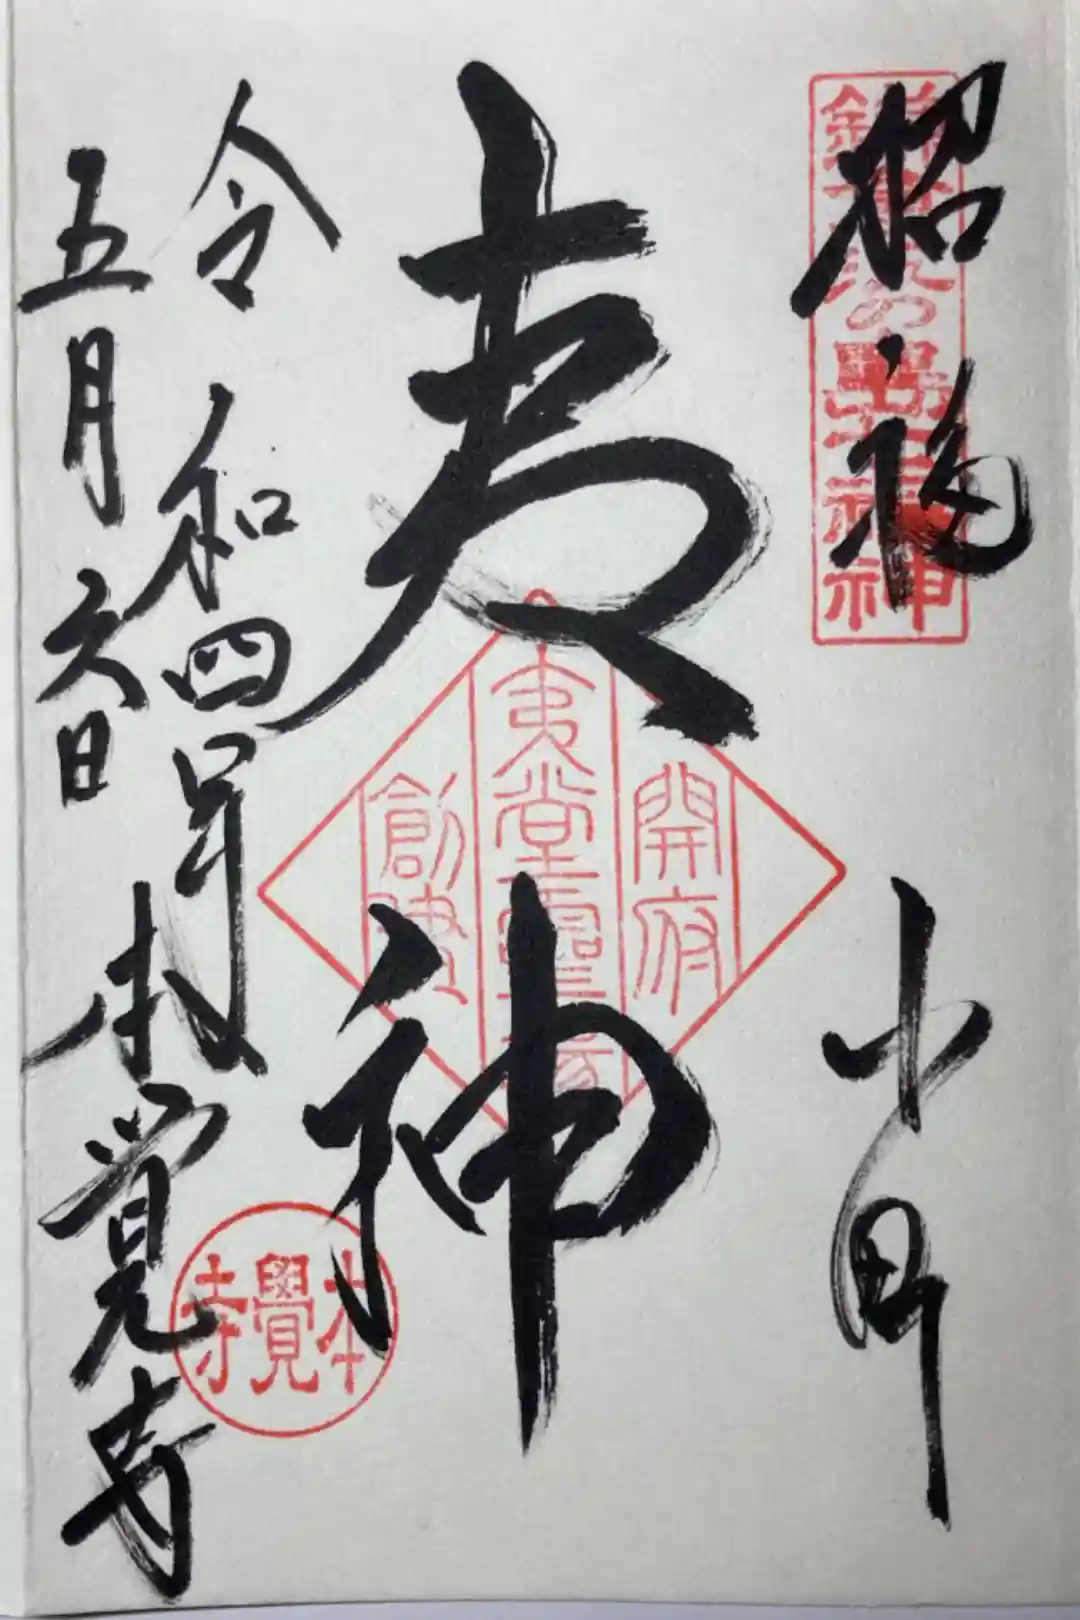 招福
小町
夷神
令和四年
五月六日
本覚寺
開府
夷堂霊場
創建
本覺寺